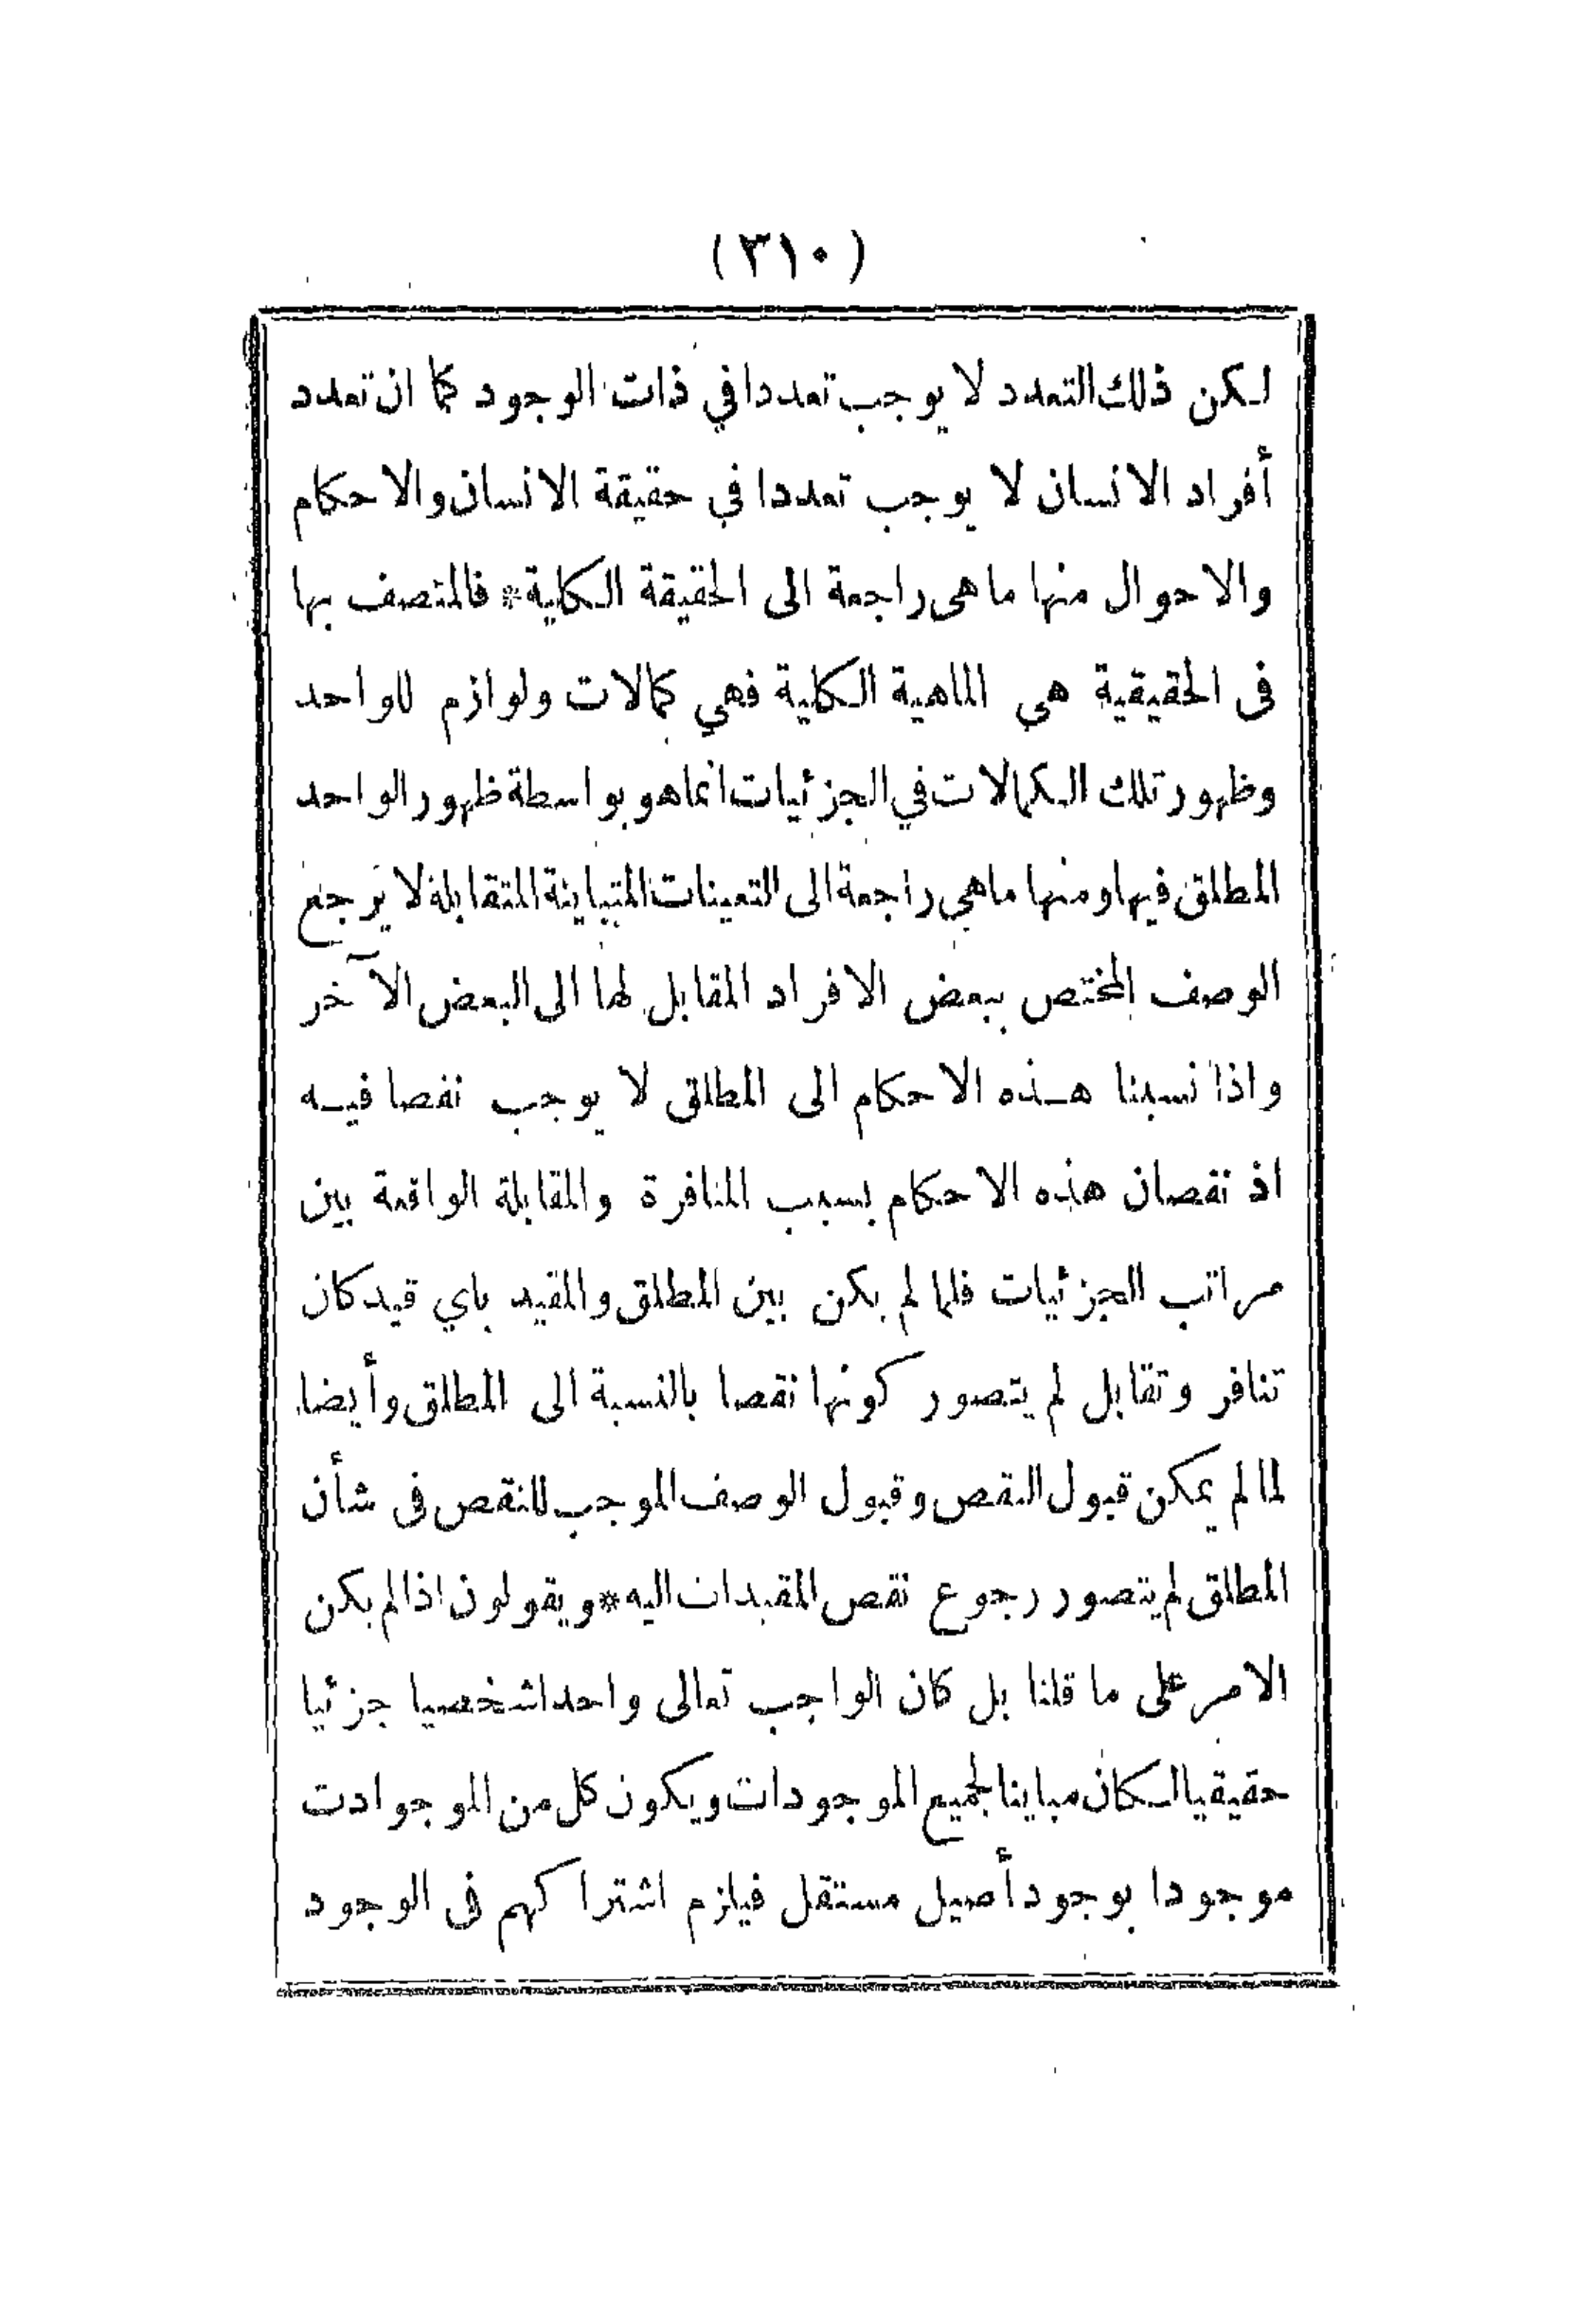 (٣١٠)
لكن ذلك التعدد لا يوجب تعددا في ذات الوجود كما ان تعدد
أفراد الانسان لا يوجب تعددا في حقيقة الانسان والاحكام
والاحوال منها ما هى راجعة الى الحقيقة الكلية * فالمتصف بها
فى الحقيقية هي الماهية الكلية فهي كمالات ولوازم للواحد
وظهور تلك الكمالات في الجزئيات انما هو بواسطة ظهور الواحد
المطلق فيها ومنها ما هي راجعة الى التعينات المتباينة المتقابلة لا يرجع
الوصف المختص ببعض الافراد المقابل لها الى البعض الآخر
واذا نسبنا هذه الاحكام الى المطلق لا يوجب نقصا فيه
اذ نقصان هذه الاحكام بسبب المنافرة والمقابلة الواقعة بين
مراتب الجزئيات فلما لم يكن بين المطلق والمقيد باي قيد كان
تنافر وتقابل لم يتصور كونها نقصا بالنسبة الى المطلق وأيضا
لما لم يمكن قبول النقص وقبول الوصف الموجب للنقص فى شأن
المطلق لم يتصور رجوع نقص المقيدات اليه * ويقولون اذا لم يكن
الامر على ما قلنا بل كان الواجب تعالى واحدا شخصيا جزئيا
حقيقيا لكان مباينا لجميع الموجودات ويكون كل من الموجوادت
موجودا بوجود أصيل مستقل فيلزم اشتراكهم فى الوجود